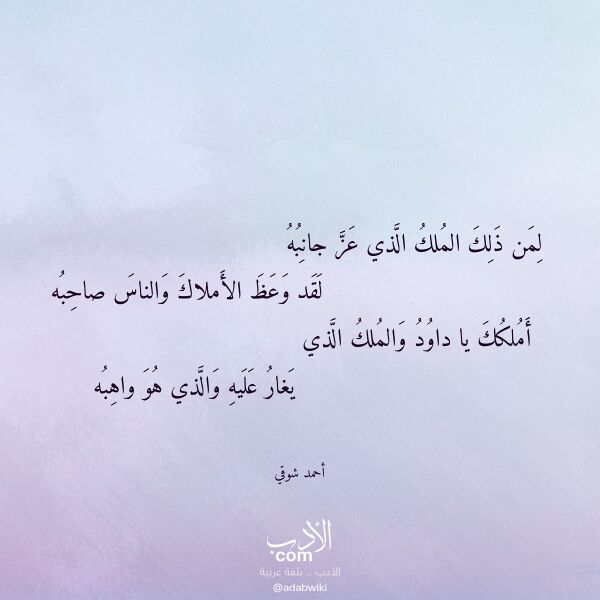 لِمَن ذَلِكَ المُلكُ الَّذي عَزَّ جانِبُهُ
لَقَد وَعَظَ الأَملاكَ وَالناسَ صاحِبُه
أَمُلكُكَ يا داوُدُ وَالمُلكُ الَّذي
يَغارُ عَلَيهِ وَالَّذي هُوَ واهِبُه
أحمد شوقي
الأدب
com
الأدب .. بلغة عربية
@adabwiki